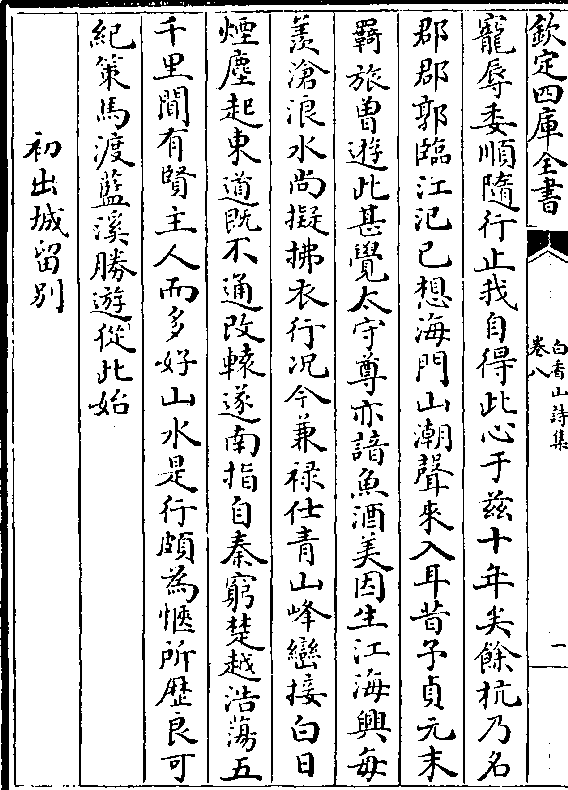 欽定四庫全書
白香山詩集
卷八
一
寵辱委順隨行止我自得此心于兹十年矣餘杭乃名
郡郡郭臨江汜已想海門山潮聲來入耳昔予貞元末
羇旅曽遊此甚覺太守尊亦諳魚酒美因生江海興每
羨滄浪水尚擬拂衣行况今兼禄仕青山峰巒接白日
煙塵起東道既不通改轅遂南指自秦窮楚越浩蕩五
千里聞有賢主人而多好山水是行頗為愜所歴良可
紀策馬渡藍溪勝遊從此始
初出城留别